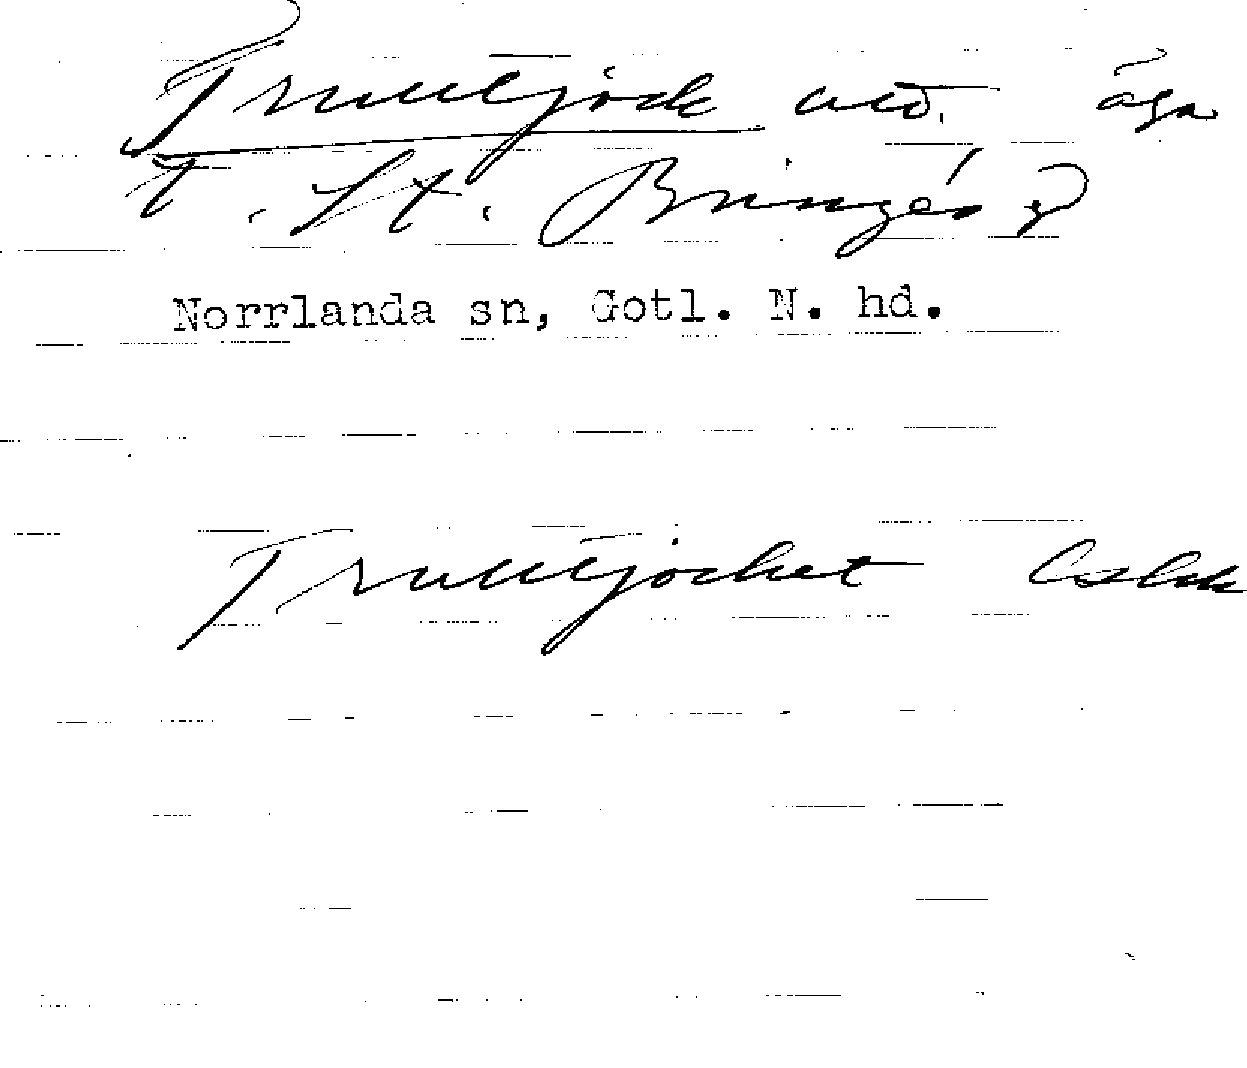 Trulltjock utd. äga
t. St. Bringes?
Norrlanda sn, Gotl. N. hd.
Trulltjocket